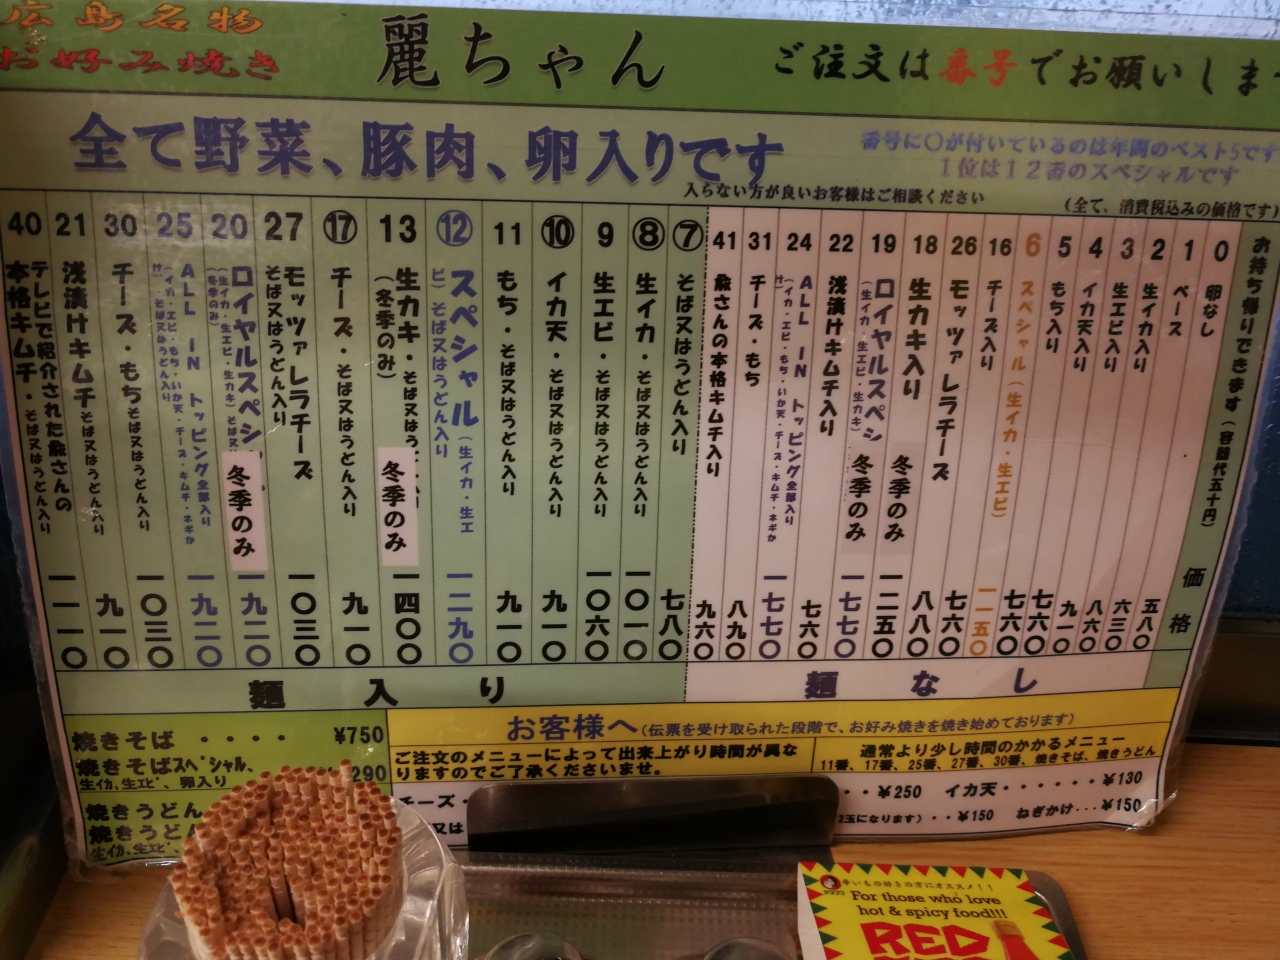 広島名物
お好み焼き
麗ちゃん
ご注文は番号でお願いしま
全て野菜、豚肉、卵入りです
番号に〇が付いているのは年間のベスト5です
1位は12番のスペシャルです
入らない方が良いお客様はご相談ください
(全て、消費税込みの価格です)
お持ち帰りできます(容器代五十円)
価格
0 卵なし
1 ベース 五八〇
2 生イカ入り 六三〇
3 生エビ入り 八六〇
4 イカ天入り 九一〇
5 もち入り 七六〇
6 スペシャル(生イカ・生エビ) 一一五〇
16 チーズ入り 七六〇
26 モッツァレラチーズ 八八〇
18 生カキ入り 冬季のみ 一二五〇
19 ロイヤルスペシ (生イカ・生エビ・生カキ) 冬季のみ 一七七〇
22 浅漬けキムチ入り 七六〇
24 ALL IN トッピング全部入り 一七七〇
31 チーズ・もち 八九〇
41 さんの本格キムチ入り 九六〇
⑦ そば又はうどん入り 七八〇
⑧ 生イカ・そば又はうどん入り 一〇一〇
9 生エビ・そば又はうどん入り 一〇六〇
⑩ イカ天・そば又はうどん入り 九一〇
11 もち・そば又はうどん入り 九一〇
⑫ スペシャル(生イカ・生エビ)そば又はうどん入り 一二九〇
13 生カキ・そば又はう (冬季のみ) 冬季のみ 一四〇〇
⑰ チーズ・そば又はうどん入り 九一〇
27 モッツァレラチーズ そば又はうどん入り 一〇三〇
20 ロイヤルスペシ (生イカ・生エビ・生カキ) (冬季のみ) 冬季のみ 一九二〇
25 ALL IN トッピング全部入り (イカ・エビ・もち・いか天・チーズ・キムチ・ネギかけ)そば又はうどん入り 一九二〇
30 チーズ・もちそば又はうどん入り 一〇三〇
21 浅漬けキムチそば又はうどん入り 九一〇
40 テレビで紹介された さんの本格キムチ・そば又はうどん入り 一一一〇
麺入り
麺なし
焼きそば ・・・・ ¥750
焼きそばスペシャル、
生イカ、生エビ、卵入り 290
焼きうどん
焼きうどん
生イカ、生エビ、
お客様へ(伝票を受け取られた段階で、お好み焼きを焼き始めております)
ご注文のメニューによって出来上がり時間が異な
りますのでご了承くださいませ。
通常より少し時間のかかるメニュー
11番、17番、25番、27番、30番、焼きそば、焼きうどん
チーズ・
・・¥250 イカ天・・・・・・¥130
又は
玉になります)・・¥150 ねぎかけ・・・¥150
辛いもの好きの方にオススメ!!
For those who love
hot & spicy food!!!
RED